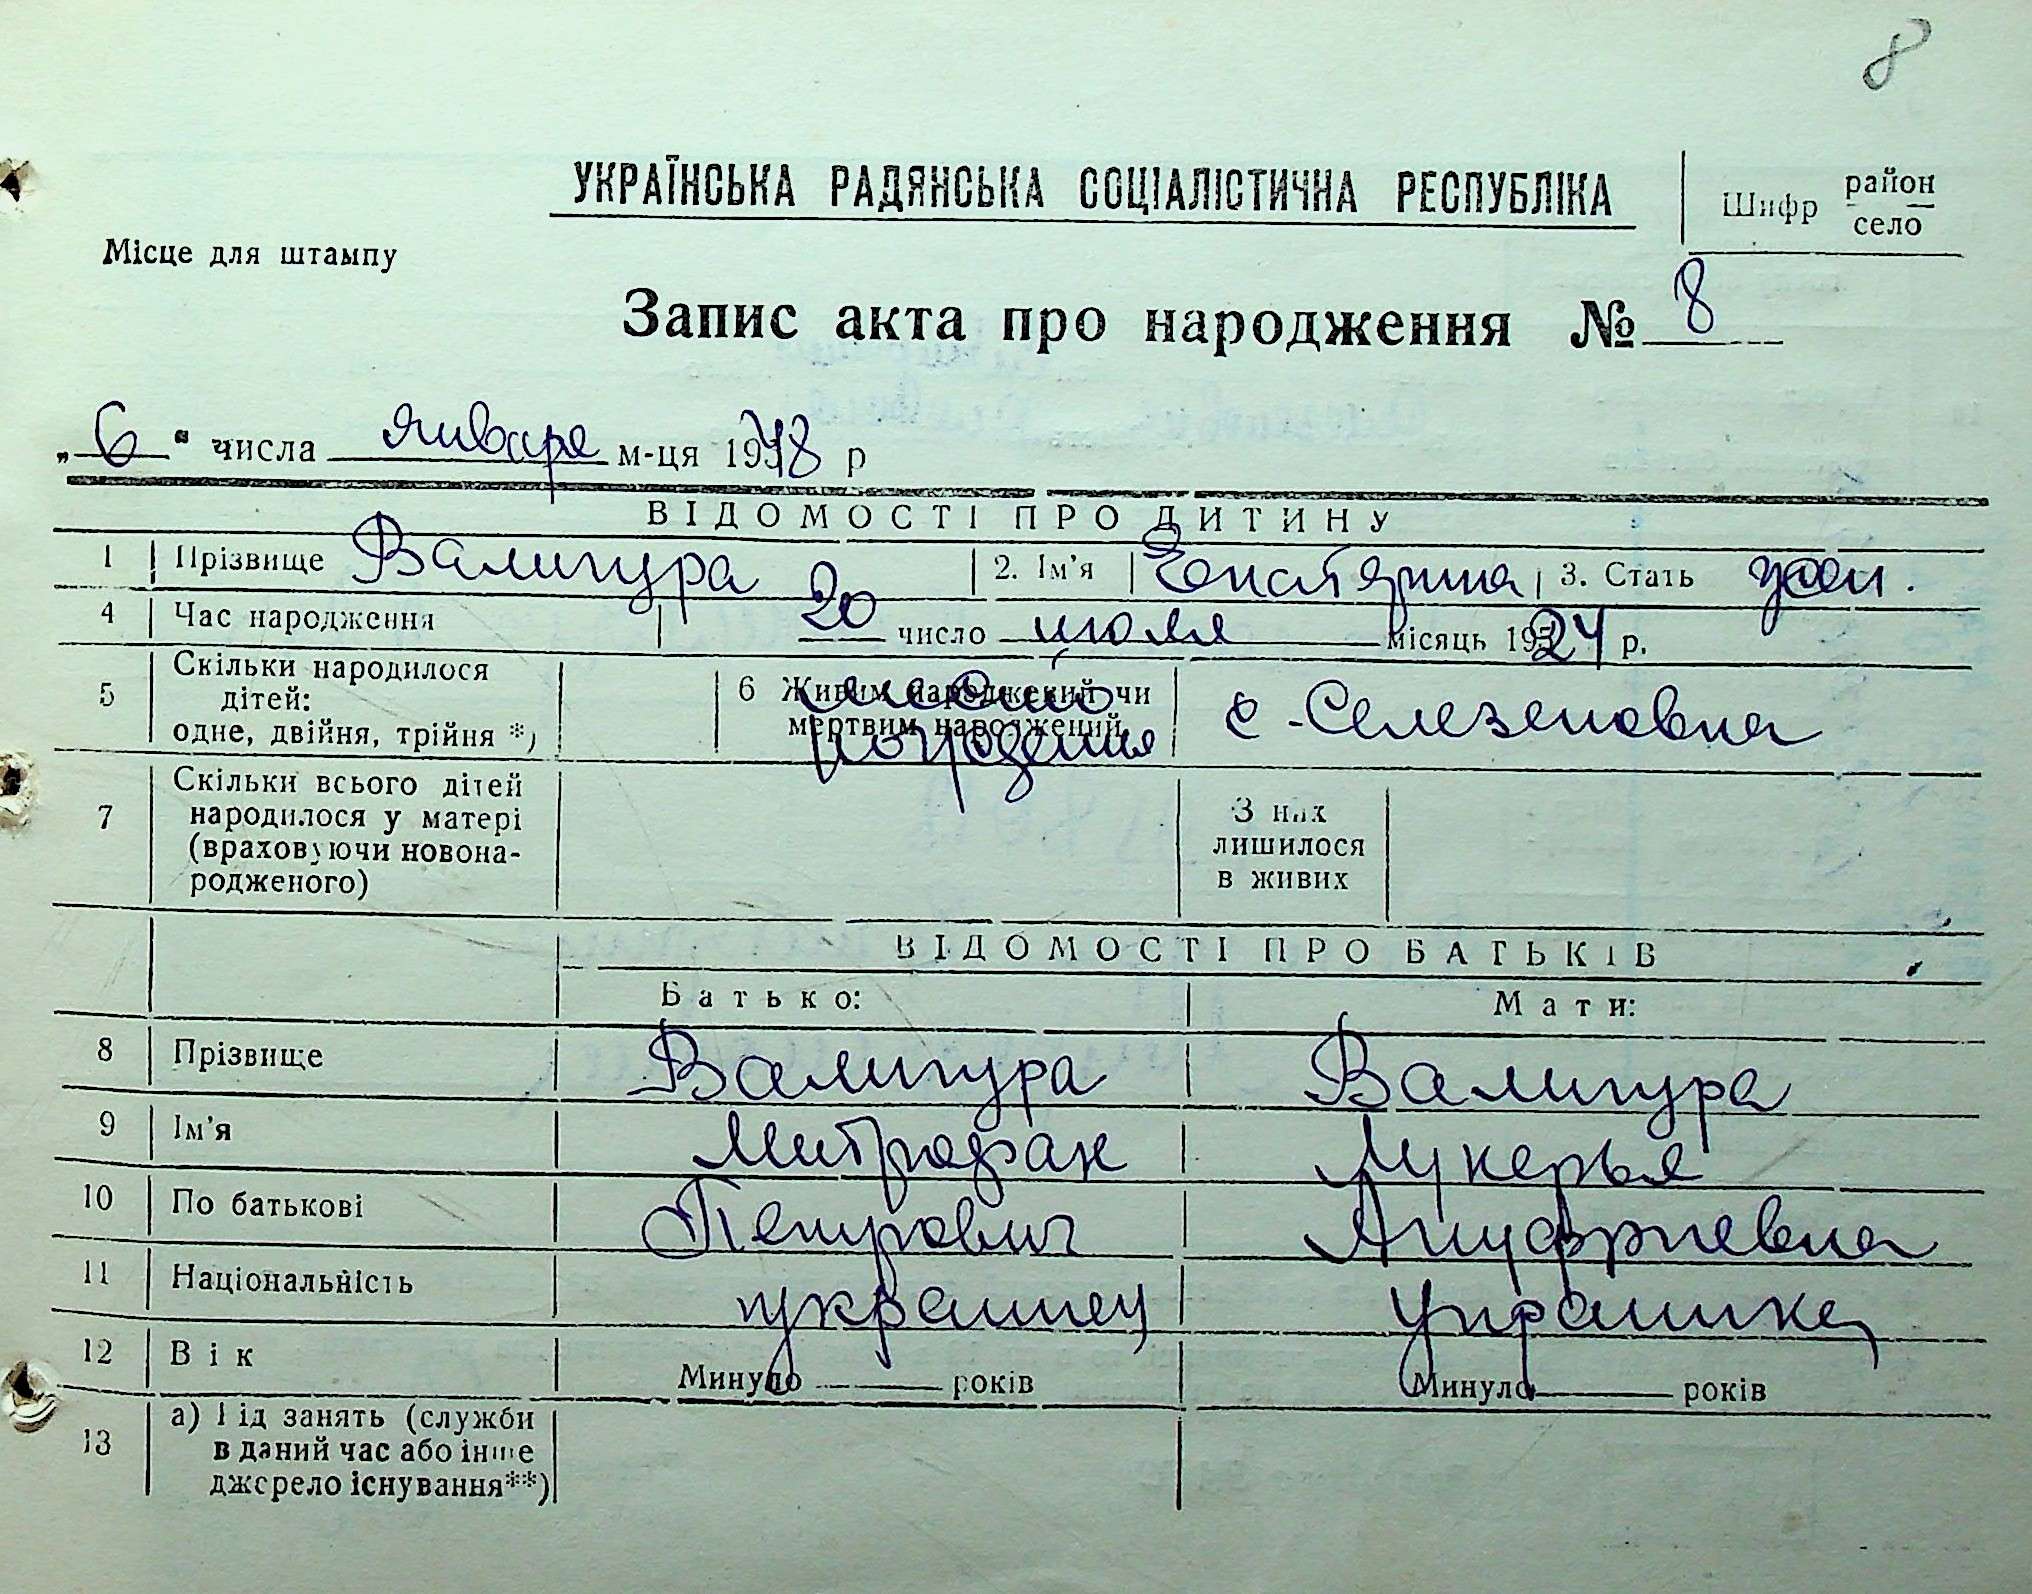 8
УКРАЇНСЬКА РАДЯНСЬКА СОЦІАЛІСТИЧНА РЕСПУБЛІКА
Шифр район село
Місце для штампу
Запис акта про народження № 8
„6“ числа января м-ця 1948 р
ВІДОМОСТІ ПРО ДИТИНУ
1 Прізвище Валигура 2. Ім'я Екатерина 3. Стать жен.
4 Час народження 20 число июля місяць 1924 р.
5 Скільки народилося дітей: одне, двійня, трійня *)
6 Живим народжений чи мертвим народжений
место рождения с-Селезеновка
7 Скільки всього дітей народилося у матері (враховуючи новонародженого)
З них лишилося в живих
ВІДОМОСТІ ПРО БАТЬКІВ
Батько: Мати:
8 Прізвище Валигура Валигура
9 Ім'я Митрофан Лукерья
10 По батькові Петрович Ануфриевна
11 Національність украинец украинка
12 Вік Минуло років Минуло років
13 а) Рід занять (служби
в даний час або інше
джерело існування**)